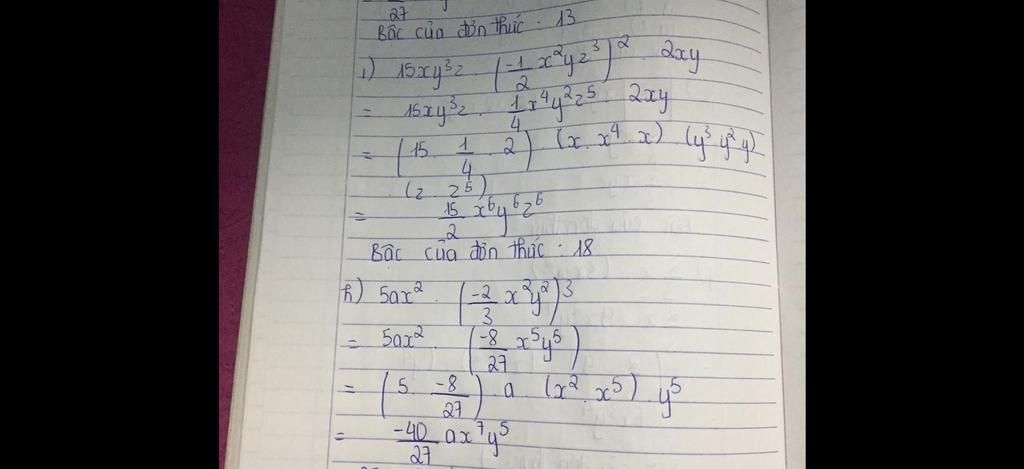 27
Bậc của đơn thức : 13
i) 15xy³z . (-1/2 x²yz³)² . 2xy
= 15xy³z . 1/4 x⁴y²z⁵ . 2xy
= (15 . 1/4 . 2) . (x . x⁴ . x) (y³ . y² . y)
. (z . z⁵)
= 15/2 x⁶y⁶z⁶
Bậc của đơn thức : 18
h) 5ax² . (-2/3 x²y²)³
= 5ax² . (-8/27 x⁵y⁵)
= (5 . -8/27) . a . (x² . x⁵) . y⁵
= -40/27 ax⁷y⁵